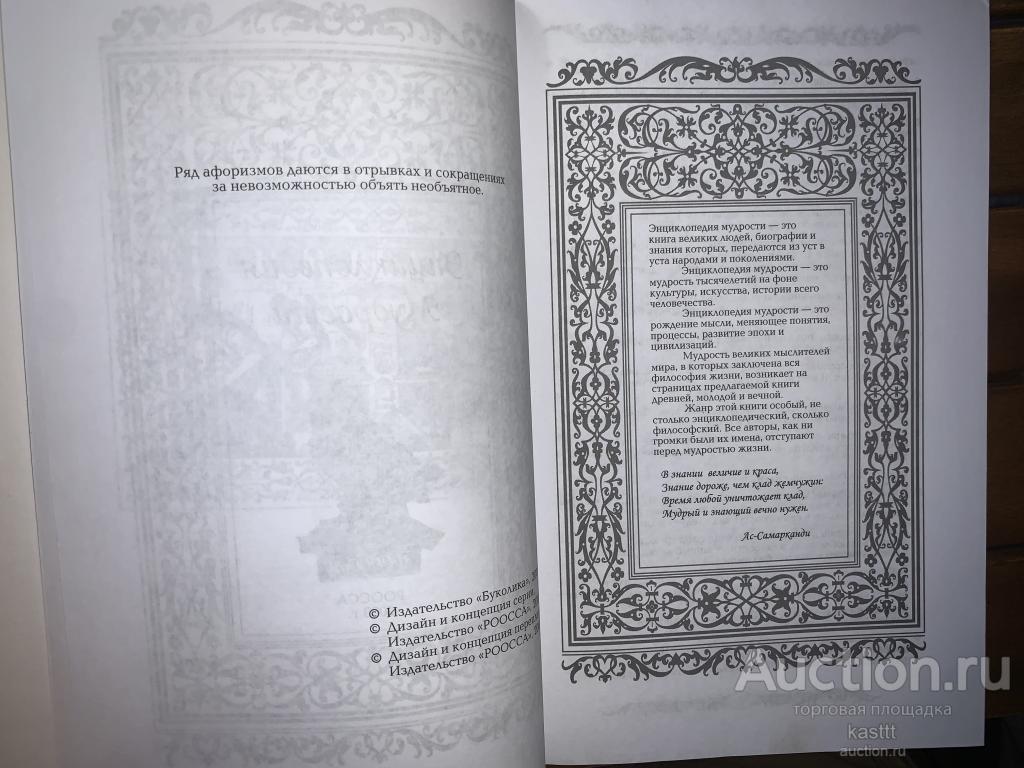 Ряд афоризмов даются в отрывках и сокращениях
за невозможностью объять необъятное.
© Издательство «Буколика»,
© Дизайн и концепция серии.
Издательство «РООССА»,
© Дизайн и концепция
Издательство «РООССА»,
Энциклопедия мудрости — это
книга великих людей, биографии и
знания которых, передаются из уст в
уста народами и поколениями.
Энциклопедия мудрости — это
мудрость тысячелетий на фоне
культуры, искусства, истории всего
человечества.
Энциклопедия мудрости — это
рождение мысли, меняющее понятия,
процессы, развитие эпохи и
цивилизаций.
Мудрость великих мыслителей
мира, в которых заключена вся
философия жизни, возникает на
страницах предлагаемой книги
древней, молодой и вечной.
Жанр этой книги особый, не
столько энциклопедический, сколько
философский. Все авторы, как ни
громки были их имена, отступают
перед мудростью жизни.
В знании величие и краса,
Знание дороже, чем клад жемчужин:
Время любой уничтожает клад,
Мудрый и знающий вечно нужен.
Ас-Самарканди
Auction.ru
торговая площадка
kasttt
auction.ru